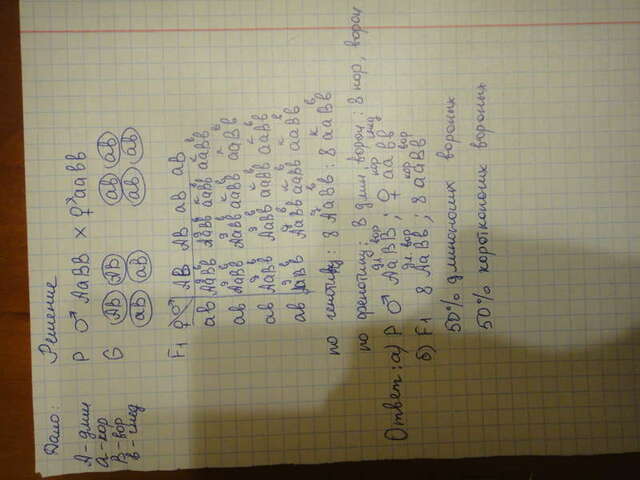 Дано:
А - длин
а - кор
В - вор
в - глад
Решение
P ♂ АаВВ × ♀ аавв
G АВ АВ ав ав
аВ аВ ав ав
F1 ♀ ♂ АВ АВ аВ аВ
ав АаВв АаВв ааВв ааВв
ав АаВв АаВв ааВв ааВв
ав АаВв АаВв ааВв ааВв
ав АаВв АаВв ааВв ааВв
по генотипу: 8 АаВв : 8 ааВв
по фенотипу: 8 длин, ворон : 8 кор, ворон
дл вор кор глад
Ответ: а) P ♂ АаВВ ; ♀ аавв
дл. вор кор вор
б) F1 8 АаВв ; 8 ааВв
50% длинноногих
50% коротконогих